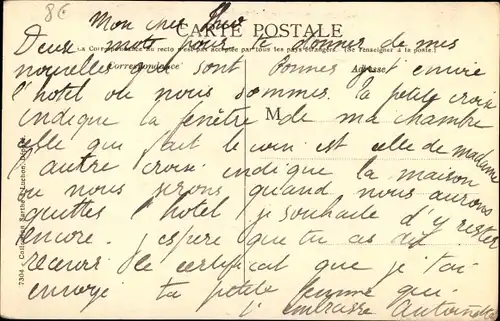 8€
Mon cher
CARTE POSTALE
La Correspondance au recto n'est pas acceptée par tous les pays étrangers. (Se renseigner à la poste.)
Correspondance
Adresse
M
Deux mots pour te donner de mes
nouvelles qui sont bonnes j't envoie
l'hotel ou nous sommes. la petite croix
indique la fenêtre de ma chambre
celle qui fait le coin est celle de madame
l autre croix indique la maison
ou nous serons quand nous aurons
quittes l'hotel je souhaite d'y rester
encore. j espere que tu as du
recevoir le certificat que je t'ai
envoyé ta petite femme qui
t embrasse Antoinette
7304 - Collection